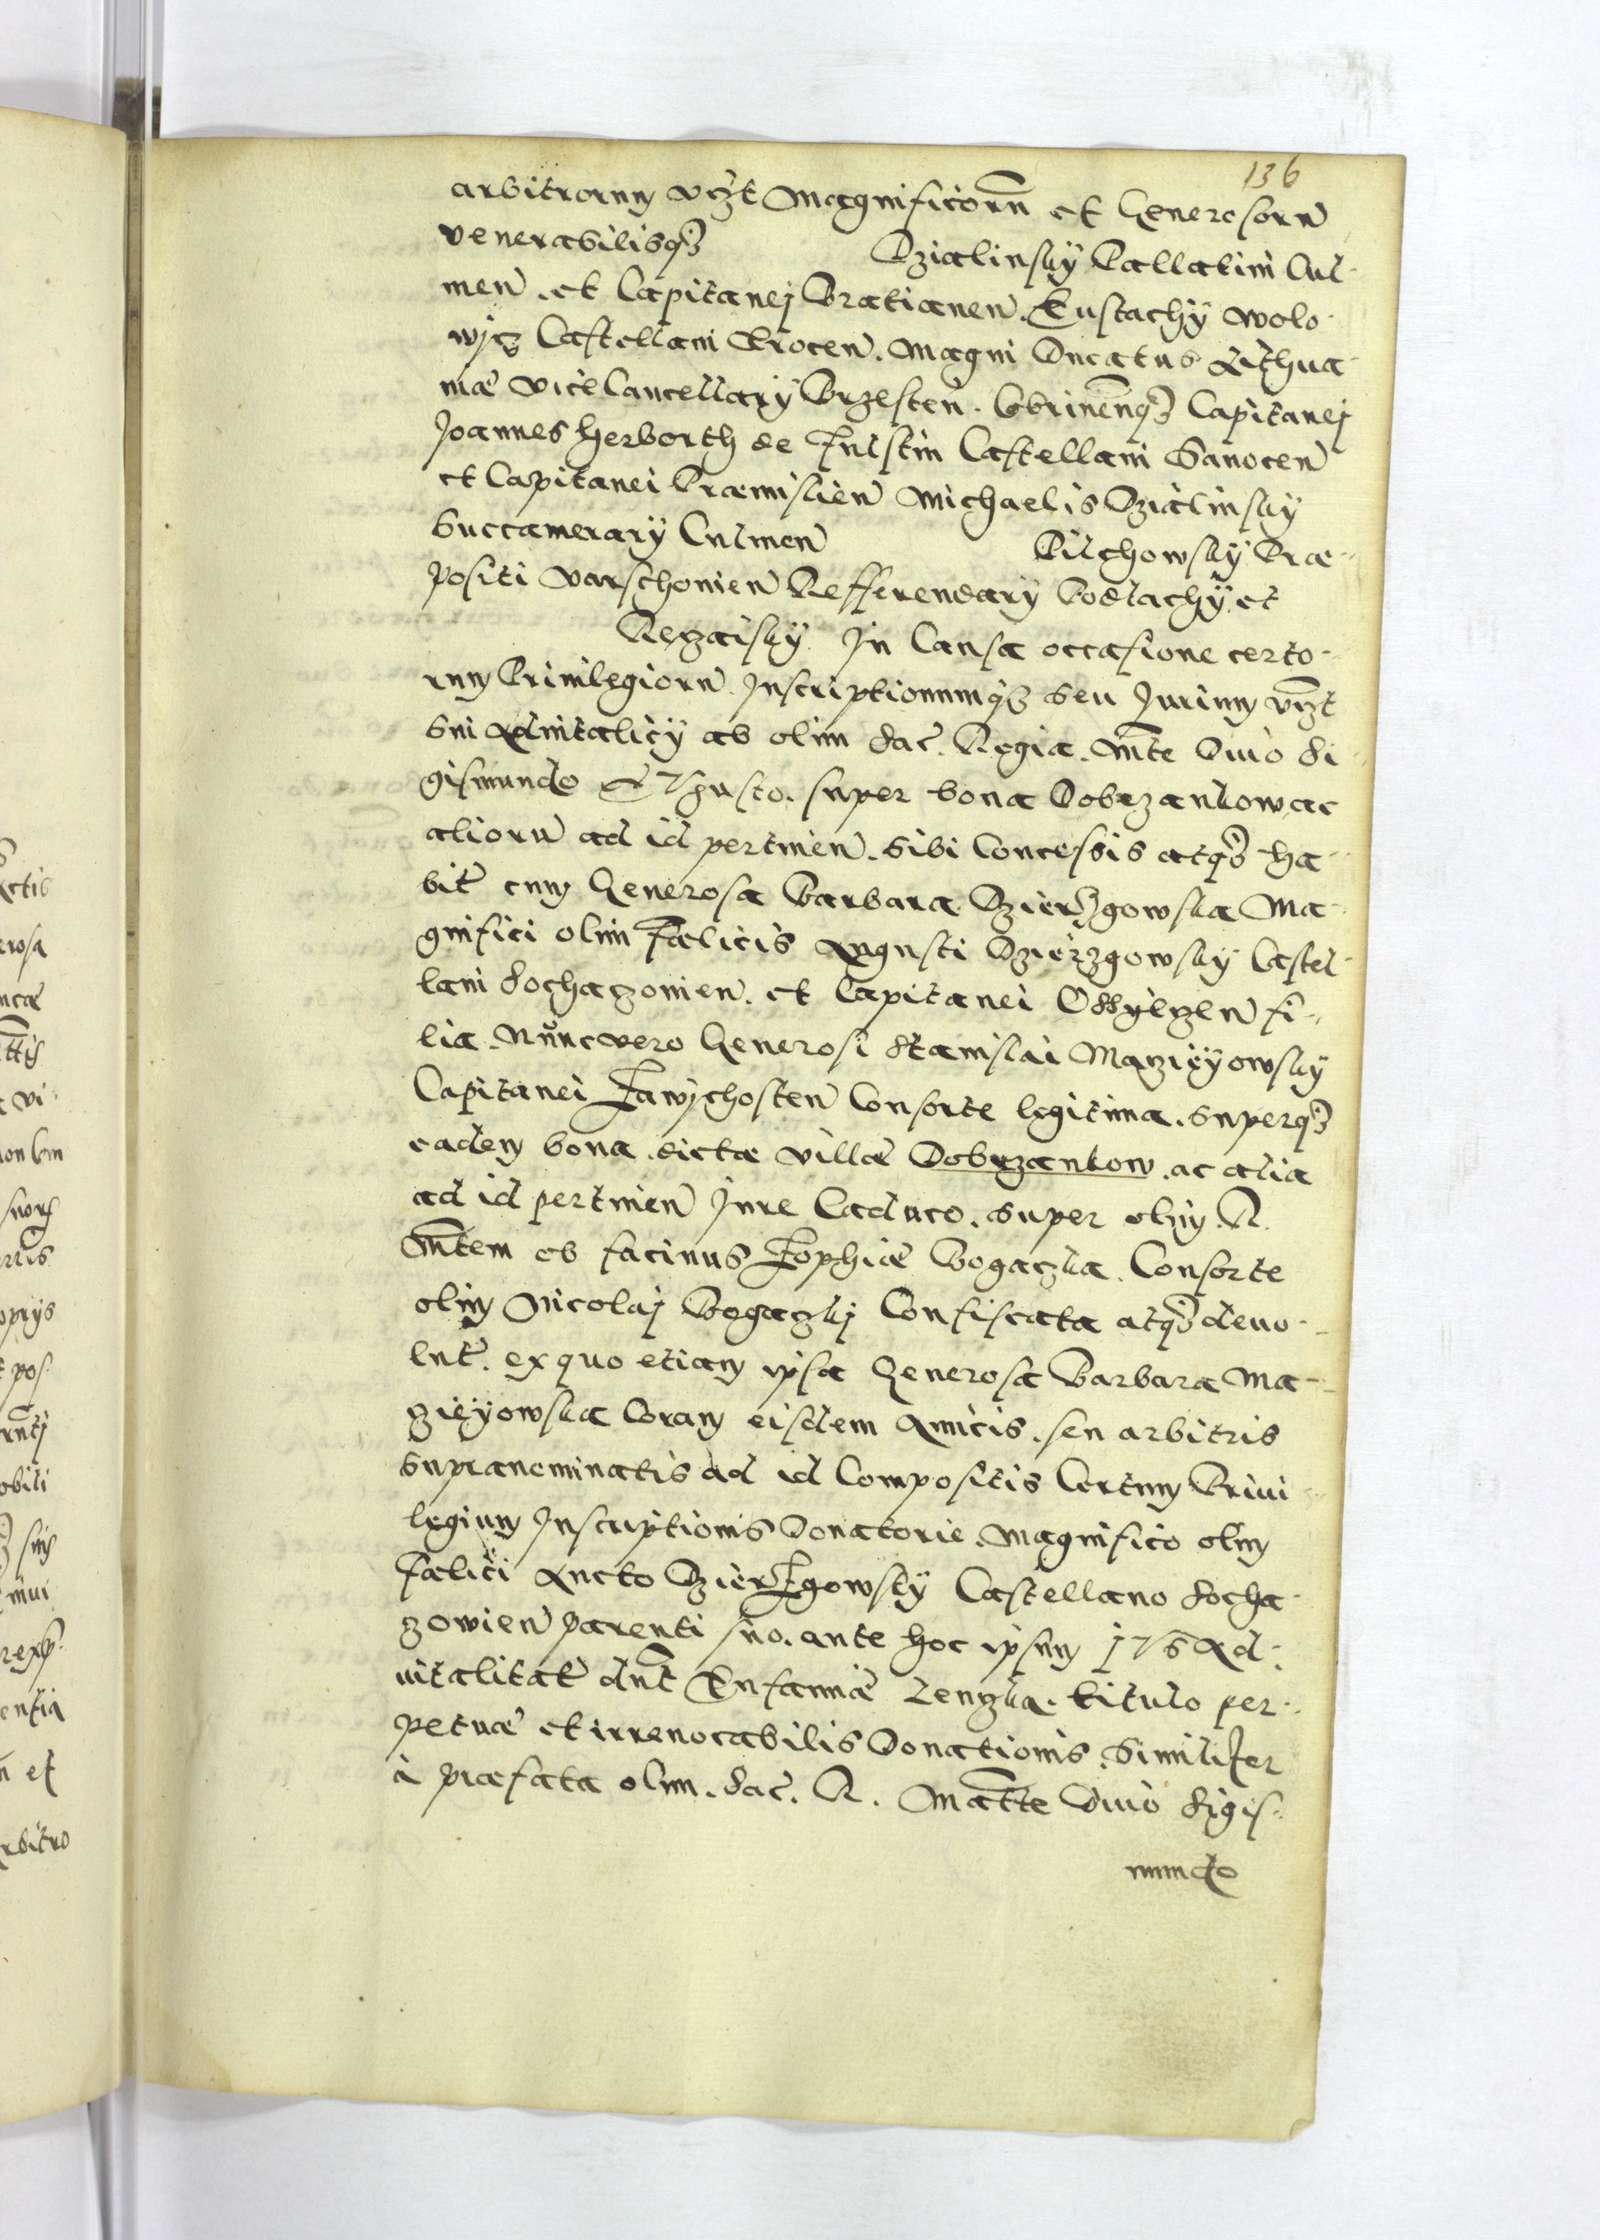 136
arbitrorum vizt Magnificorn et Generosorn
venerabilisqз Dzialinsky Pallatini Cul-
men. et Capitanej Bratianen. Eustachÿ Wolo-
wjcz Castellani Trocen. Magni Ducatus Lithua-
niæ Vicecancellarÿ Brzesten. Cobrinenqз Capitanej
Joannes Herborth de Fulstin Castellani Sanocen
et Capitanei Præmislien Michaelis Dzialinsky
Succamerarÿ Culmen Pilchowsky Præ-
positi Varschovien Refferendarÿ Podlachÿ, et
In Causa occasione certo-
rum Privilegiorn. Inscriptionumqз seu Jurium vizt
sui Advitalicÿ ab olim Sac. Regia. Mte Divo Si-
gismundo Augusto. super bona Dobrzankow, ac
aliorn ad id pertinen. sibi Concessis atqз ha-
bit cum Generosa Barbara Dzierzgowska Ma-
gnifici olim Fælicis Augusti Dzierzgowsky Castel-
lani Sochazovien. et Capitanei fi-
lia. Nunc vero Generosi Stanislai Maziëÿowsky
Capitanei Zawÿchosten Consorte legitima. superqз
eadem bona dictæ villæ Dobrzankow. ac alia
ad id pertinen Jure Caduco. super olim R.
Mtem ob facinus Zophiæ Bogaczka. Consorte
olim Nicolaj Bogaczkj Confiscata atqз devo-
lut. ex quo etiam ipsa Generosa Barbara Ma-
zieÿowska Coram eisdem Amicis. seu arbitris
supranominatis ad id Compositis Certum Privi-
legium Inscriptionis Donatorie. Magnifico olim
Fælici Aucto Dzierzgowsky Castellano Socha-
zowien parenti suo. ante hoc ipsum Jus Ad-
vitalitat dnt Eufamiæ Lenczka. titulo per-
petuæ et irrevocabilis Donationis. Similiter
à præfata olim. Sac. R. Matte Divo Sigis-
mundo